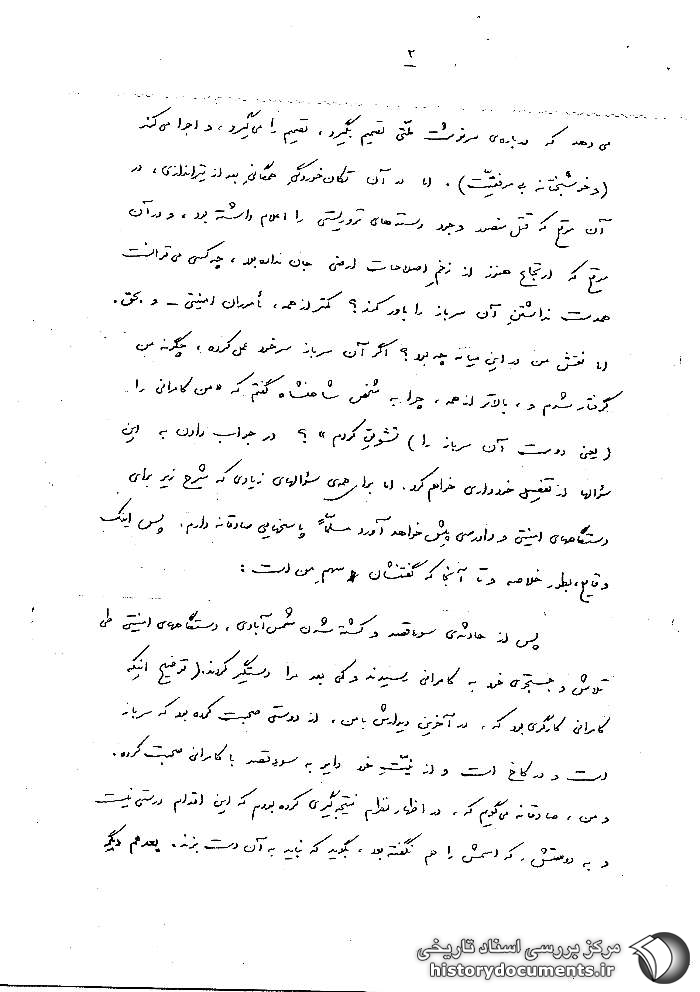 ۲
می‌دهد که درباره‌ی سرنوشت ملّتی تصمیم بگیرد، تصمیم را می‌گیرد، و اجرا می‌کند
(و خوشبختانه بی‌موفقیّت). اما در آن تکان‌خوردگیِ همگانیِ بعد از تیراندازی، در
آن موقع که قتل منصور وجود دسته‌های تروریستی را اعلام داشته بود، و در آن
موقع که ارتجاع هنوز از زخم اصلاحات ارضی جان نداده بود، چه کسی می‌توانست
همدست نداشتنِ آن سرباز را باور کند؟ کمتر از همه، مأموران امنیتی ـ و بحق.
اما نقش من در این میانه چه بود؟ اگر آن سرباز سرخود عمل کرده، چگونه من
گرفتار شدم و، بالاتر از همه، چرا به شخص شاهنشاه گفتم که «من کامرانی را
(یعنی دوست آن سرباز را) تشویق کردم»؟ در جواب دادن به این
سؤالها از تفصیل خودداری خواهم کرد. اما برای همه‌ی سؤالهای زیادی که شرح زیر برای
دستگاههای امنیتی و دادرسی پیش خواهد آورد مسلّماً پاسخهایی صادقانه دارم. پس اینک
وقایع، بطور خلاصه و تا آنجا که گفتنشان سهم من است:
پس از حادثه‌ی سوءقصد و کشته شدن شمس‌آبادی، دستگاههای امنیتی طی
تلاش و جستجوی خود به کامرانی رسیدند و کمی بعد مرا دستگیر کردند. (توضیح اینکه
کامرانی کارگری بود که، در آخرین دیدارش با من، از دوستی صحبت کرده بود که سرباز
است و در کاخ است و از نیّتِ خود دایر به سوءقصد با کامرانی صحبت کرده.
و من، صادقانه می‌گویم که، در اظهار نظرم نتیجه‌گیری کرده بودم که این اقدام درستی نیست
و به دوستش، که اسمش را هم نگفته بود، بگوید که نباید به آن دست بزند. بعد هم دیگر
مرکز بررسی اسناد تاریخی
historydocuments.ir